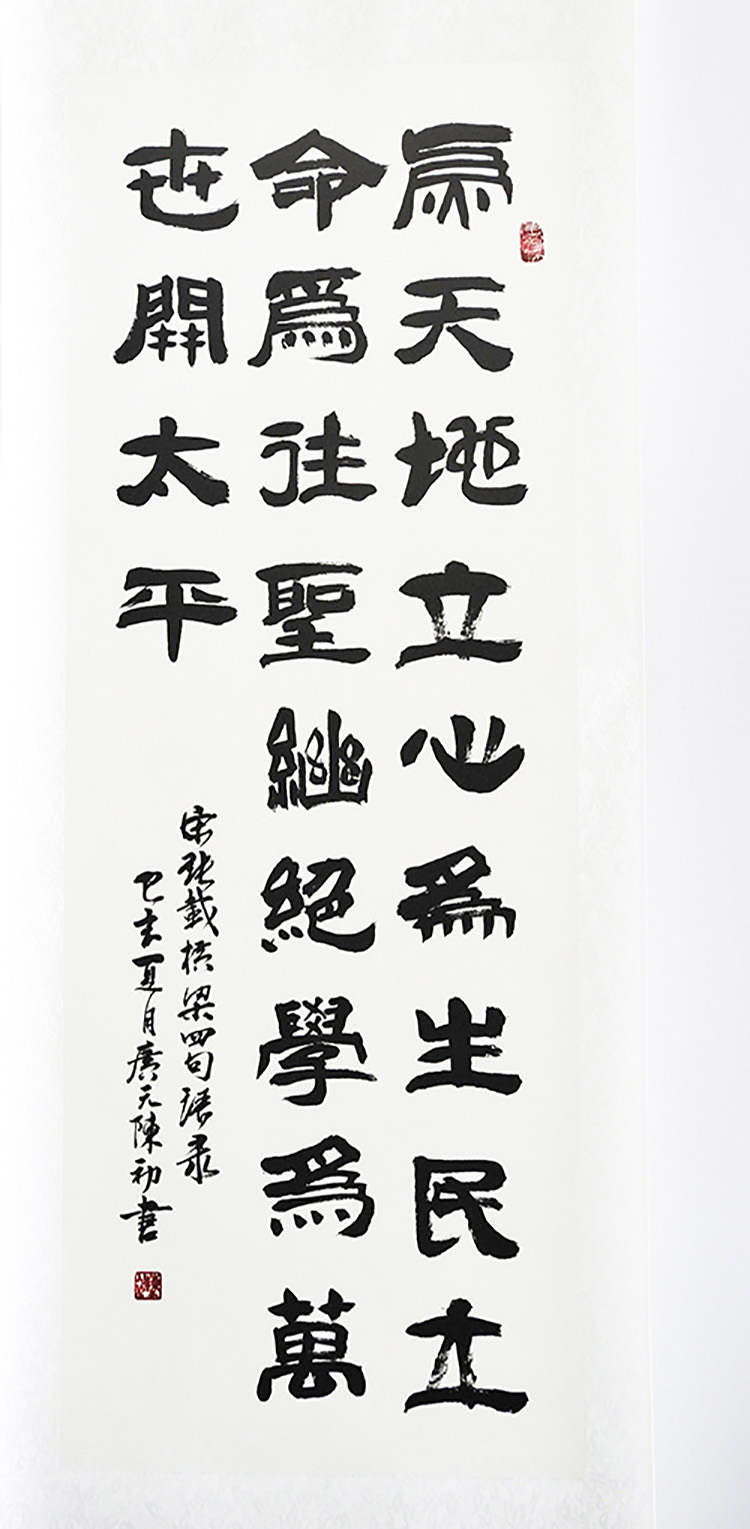 爲天地立心爲生民立
命爲往聖繼絕學爲萬
世開太平
宋张載横渠四句语录
己亥夏月廣元陳初書